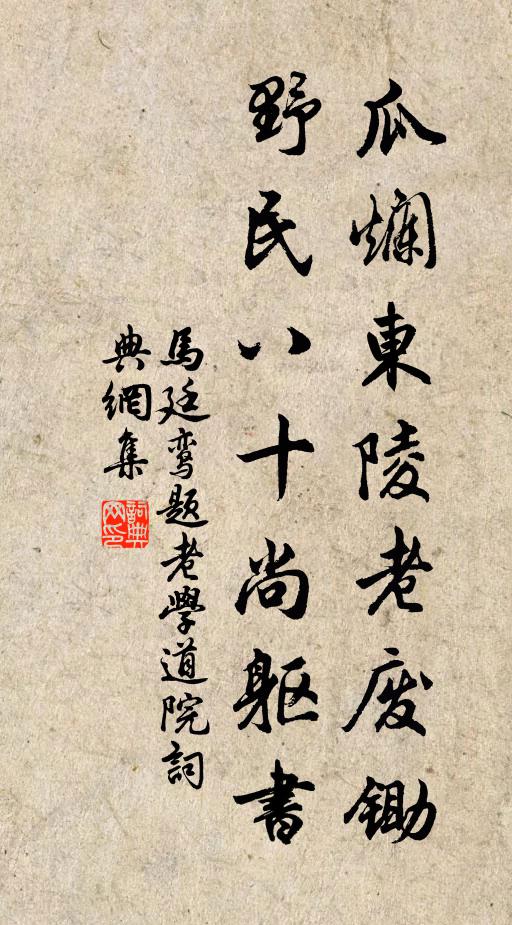 瓜爛東陵老廢鋤
野民八十尚躯書
馬廷鸾題老學道院詞
典網集
詞典網印